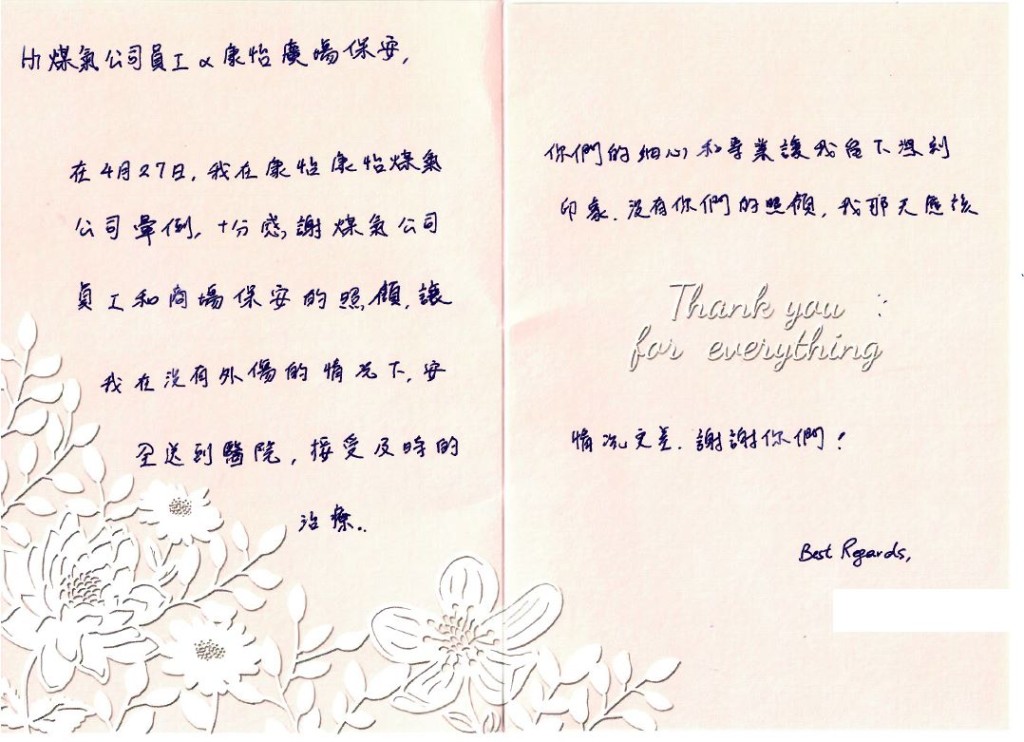 Hi 煤氣公司員工 & 康怡廣場保安,
在4月27日, 我在康怡康怡煤氣
公司暈倒, 十分感謝煤氣公司
員工和商場保安的照顧, 讓
我在沒有外傷的情况下, 安
全送到醫院, 接受及時的
治療..
你們的細心和專業讓我留下深刻
印象. 沒有你們的照顧, 我那天應該
Thank you
for everything
情况更差. 謝謝你們!
Best Regards,